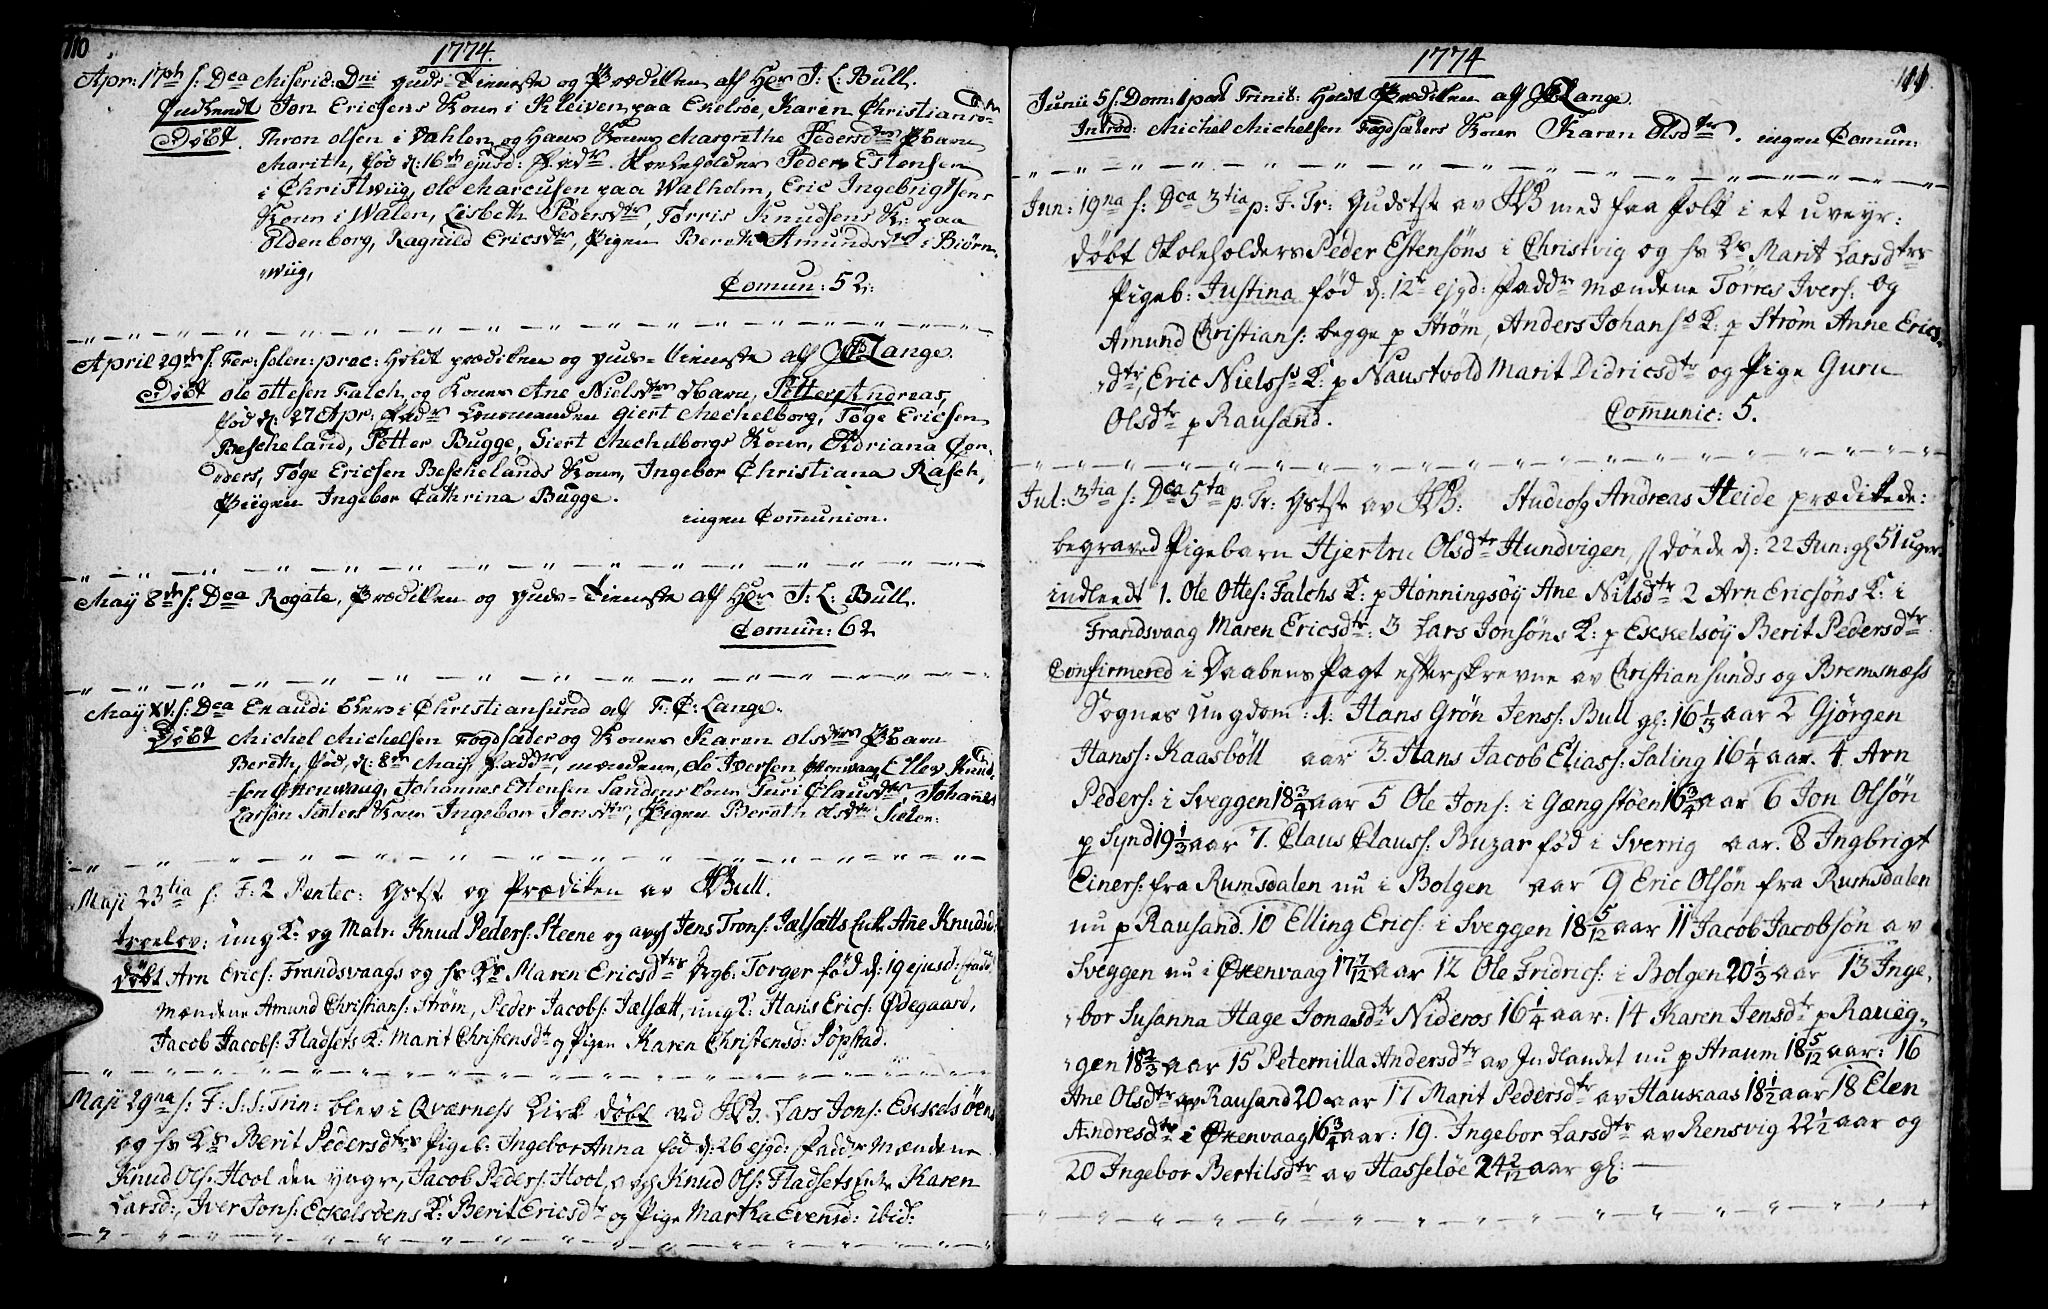 110
1774.
Apr: 17ph s: Dca Misericd: Dni guds-Tieneste og Prædiken af Hr J: L: Bull.
Indlendt Jon Ericsens Kone i Kleiven paa Ekelsøe, Karen Christians-
Døbt. Thron olsen i Vahlen og Hans Kones Margrethe Pedersdtrs Barn
Marith, fød d: 16de ejusd: Fadr: Skoleholder Peder Estensen
i Christwiig, ole Marcusen paa Walholm, Eric Ingebrigtsens
Kone i Walen, Lisbeth Pedersdtr, Torris Knudsens K: paa
Oldenborg, Ragnild Ericsdtr, Pigen Bereth Amundsdtr i Biørn-
wiig,
Comun: 52:
April 29de s: Fer: solen: prec: holdt prædiken og guds-Tieneste af FC Lange.
Døbt ole ottesen Falch og Kones Ane Nielsdtrs Barn, Petter Andreas,
fød d: 27 Apr: Fadr: Lensmanden Giert Mechelborg, Tøge Ericsen
Bescheland, Petter Bugge, Giert Mechelborgs Kone, Adriana Con-
ders, Tøge Ericsen Beschelands Kone, Ingebor Christiana Rasch,
Piigen Ingebor Cathrina Bugge.
ingen Comunion.
May 8de s: Dca Rogate, Prædiken og guds-Tieneste af Hr J: L: Bull.
Comun: 62
May XV. s: Dca Exaudi blev i Christiansund af F: C: Lange.
Døbt Michel Michelsen Fogdsæder og Kones Karen olsdtrs Barn
Bereth, fød, d: 8de May, Fadd:, mændene, ole Iversen Ottenwaag, Ellev Knud-
sen Ottenwaug, Johannes Estensen Sandens Kone Guri Clausdtr Johannes
Larsøn Kone Ingebor Jonsdtr, Pigen Bereth olsdtr
Maji 23tia s: F: 2 Pentec: Gstst og Prædiken av JLBull.
troelov: ung K: og Matr: Knud Peders: Steene og Jens Trons: Jælsætts Enk: Ane Knudsd:
døbt Arn Erics: Frandsvaags og hs Ks Maren Ericsdtrs Drgb: Torger fød d: 19 ejusd: Fadd:
Mændene Amund Christians: Strøm, Peder Jacobs: Jælsætt, ungk: Hans Erics: Ødegaard,
Jacob Jacobs: Fladsets K: Marit Christensdtr og Pigen Karen Christensd: Sopstad.
Maji 29na s: F: S: S: Trin: blev i Qværness Kirk døbt ved JLB. Lars Jons: Ekkelsöens
og hs Ks Berit Pedersdtrs Pigeb: Ingebor Anna fød d: 26 ejgd: Faddr Mændene
Knud Ols: Hool den yngre, Jacob Peders: Hool, Knud Ols: Fladsets Karen
Larsd:, Iver Jons: Eckelsöens K: Berit Ericsdtr og Pige Martha Evensd: ibid:
1774
111.
Junii 5 s: Dom: 1 post Trinit: Holdt Prædiken af FCLange.
Introd: Michel Michelsen Fogdsæters Kone Karen Olsdtr. ingen Comun:
Jun: 19na s: Dca 3tia p: F. Tr: Gudstst av JLB med faa folk i et uveyr:
döbt Skoleholders Peder Estensöns i Christvig og hs Ks Marit Larsdtrs
Pigeb: Justina fød d: 12te ejgd: Faddr Mændene Törres Ivers: og
Amund Christians: begge p Ström, Anders Johanss K: p Ström Anne Erics-
dtr, Eric Nielss K: p Naustvold Marit Didricsdtr og Pige Guru
Olsdtr p Rausand.
Communic: 5.
Jul: 3tia s: Dca 5ta p. Tr: Gstst av JLB: Studiosg Andreas Heide prædikede:
begraved Pigebarn Hjertru Olsdtr Hundvigen döede d: 22 Jun: gl 51 uger
indleedt 1. Ole Ottes: Falchs K: p Honningsöy Ane Nilsdtr 2 Arn Ericsöns K: i
Frandsvaag Maren Ericsdtr: 3 Lars Jonsöns K: p Ekkelsöy Berit Pedersdtr
Confirmered i Daabens Pagt efterskrevne av Christiansunds og Bremsnæss
Sognes Ungdom: 1: Hans Grön Jenss: Bull gl: 16 1/3 aar 2 Gjörgen
Hanss: Kaasböll aar 3. Hans Jacob Eliass: Saling 16 1/4 aar. 4 Arn
Peders: i Sveggen 18 3/4 aar 5 Ole Jons: i Gængstöen 16 3/4 aar 6 Jon Olsön
p Synd 19 1/3 aar 7. Claus Clauss: Buzar fød i Sverrig aar. 8 Ingbrigt
Einers: fra Rumsdalen nu i Bolgen aar 9 Eric Olsön fra Rumsdalen
nu p Rausand. 10 Elling Erics: i Sveggen 18 5/12 aar 11 Jacob Jacobsön av
Sveggen nu i Øxenvaag 17 7/12 aar 12 Ole Fridrics: i Bolgen 20 1/3 aar 13 Inge-
bor Susanna Hage Jonasdtr Nideros 16 1/4 aar: 14 Karen Jensdtr p Raueg-
gen 18 2/3 aar 15 Peternilla Andersdtr av Indlandet nu p Straum 18 5/12 aar: 16
Ane Olsdtr av Rausand 20 aar 17 Marit Pedersdtr av Haukaas 18 1/2 aar 18 Elen
Andresdtr i Øxenvaag 16 3/4 aar: 19. Ingebor Larsdtr av Rensvig 22 1/2 aar og
20 Ingebor Bertilsdtr av Hasselöe 24 2/12 aar gl: